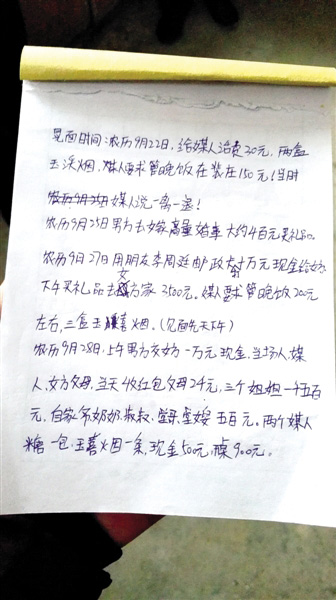 见面时间:农历9月22日,给媒人话费30元,两盒
玉溪烟,媒人要求管晚饭在紫在150元(当时
农历9月25日媒人说一离一退!
农历9月25日男方去女家商量婚事大约4百元买礼品。
农历9月27日用朋友李周廷邮政卡取万元现金给女方
下午买礼品去女方家3500元。媒人要求管晚饭200元
左右,三盒玉喜烟。(见面先天下午)
农历9月28日,上午男方交女方一万元现金,当场人,媒
人,女方父母,当天收红包父母24元,三个姐姐一千五百
元,自家爷奶奶,叔叔,堂哥,堂嫂五百元。两个媒人
糖一包,玉喜烟一条,现金50元,桌900元。